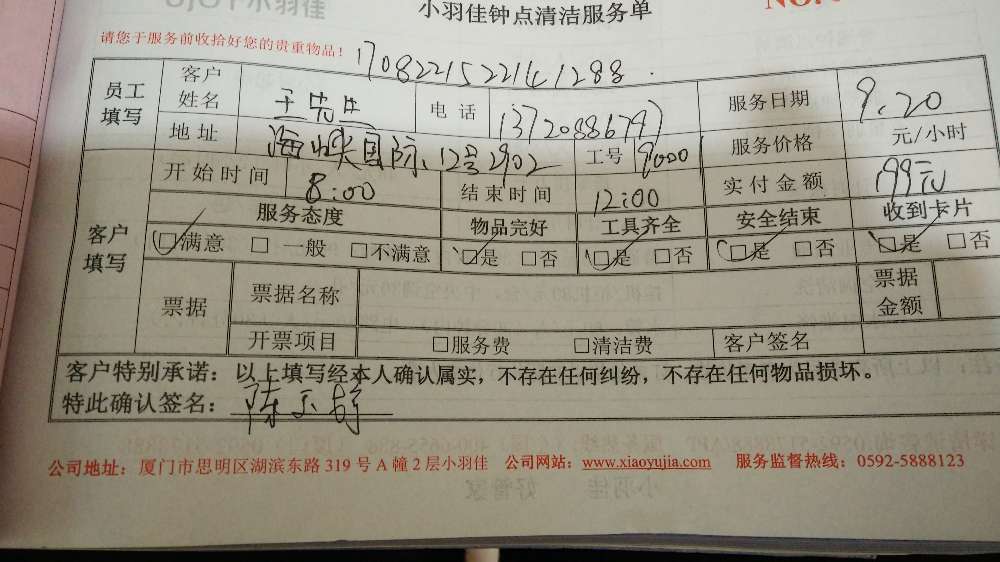 小羽佳钟点清洁服务单
NO.
请您于服务前收拾好您的贵重物品！
1708221522141288
员工填写 客户姓名 王先生 电话 13720886797 服务日期 9.20
地址 海峡国际 12号2902 工号 9000 服务价格 元/小时
客户填写 开始时间 8:00 结束时间 12:00 实付金额 199元
服务态度 物品完好 工具齐全 安全结束 收到卡片
☑满意 □一般 □不满意 ☑是 □否 ☑是 □否 ☑是 □否 ☑是 □否
票据 票据名称 票据金额
开票项目 □服务费 □清洁费 客户签名
客户特别承诺：以上填写经本人确认属实，不存在任何纠纷，不存在任何物品损坏。
特此确认签名：陈
公司地址：厦门市思明区湖滨东路 319 号 A 幢 2 层小羽佳 公司网站：www.xiaoyujia.com 服务监督热线：0592-5888123